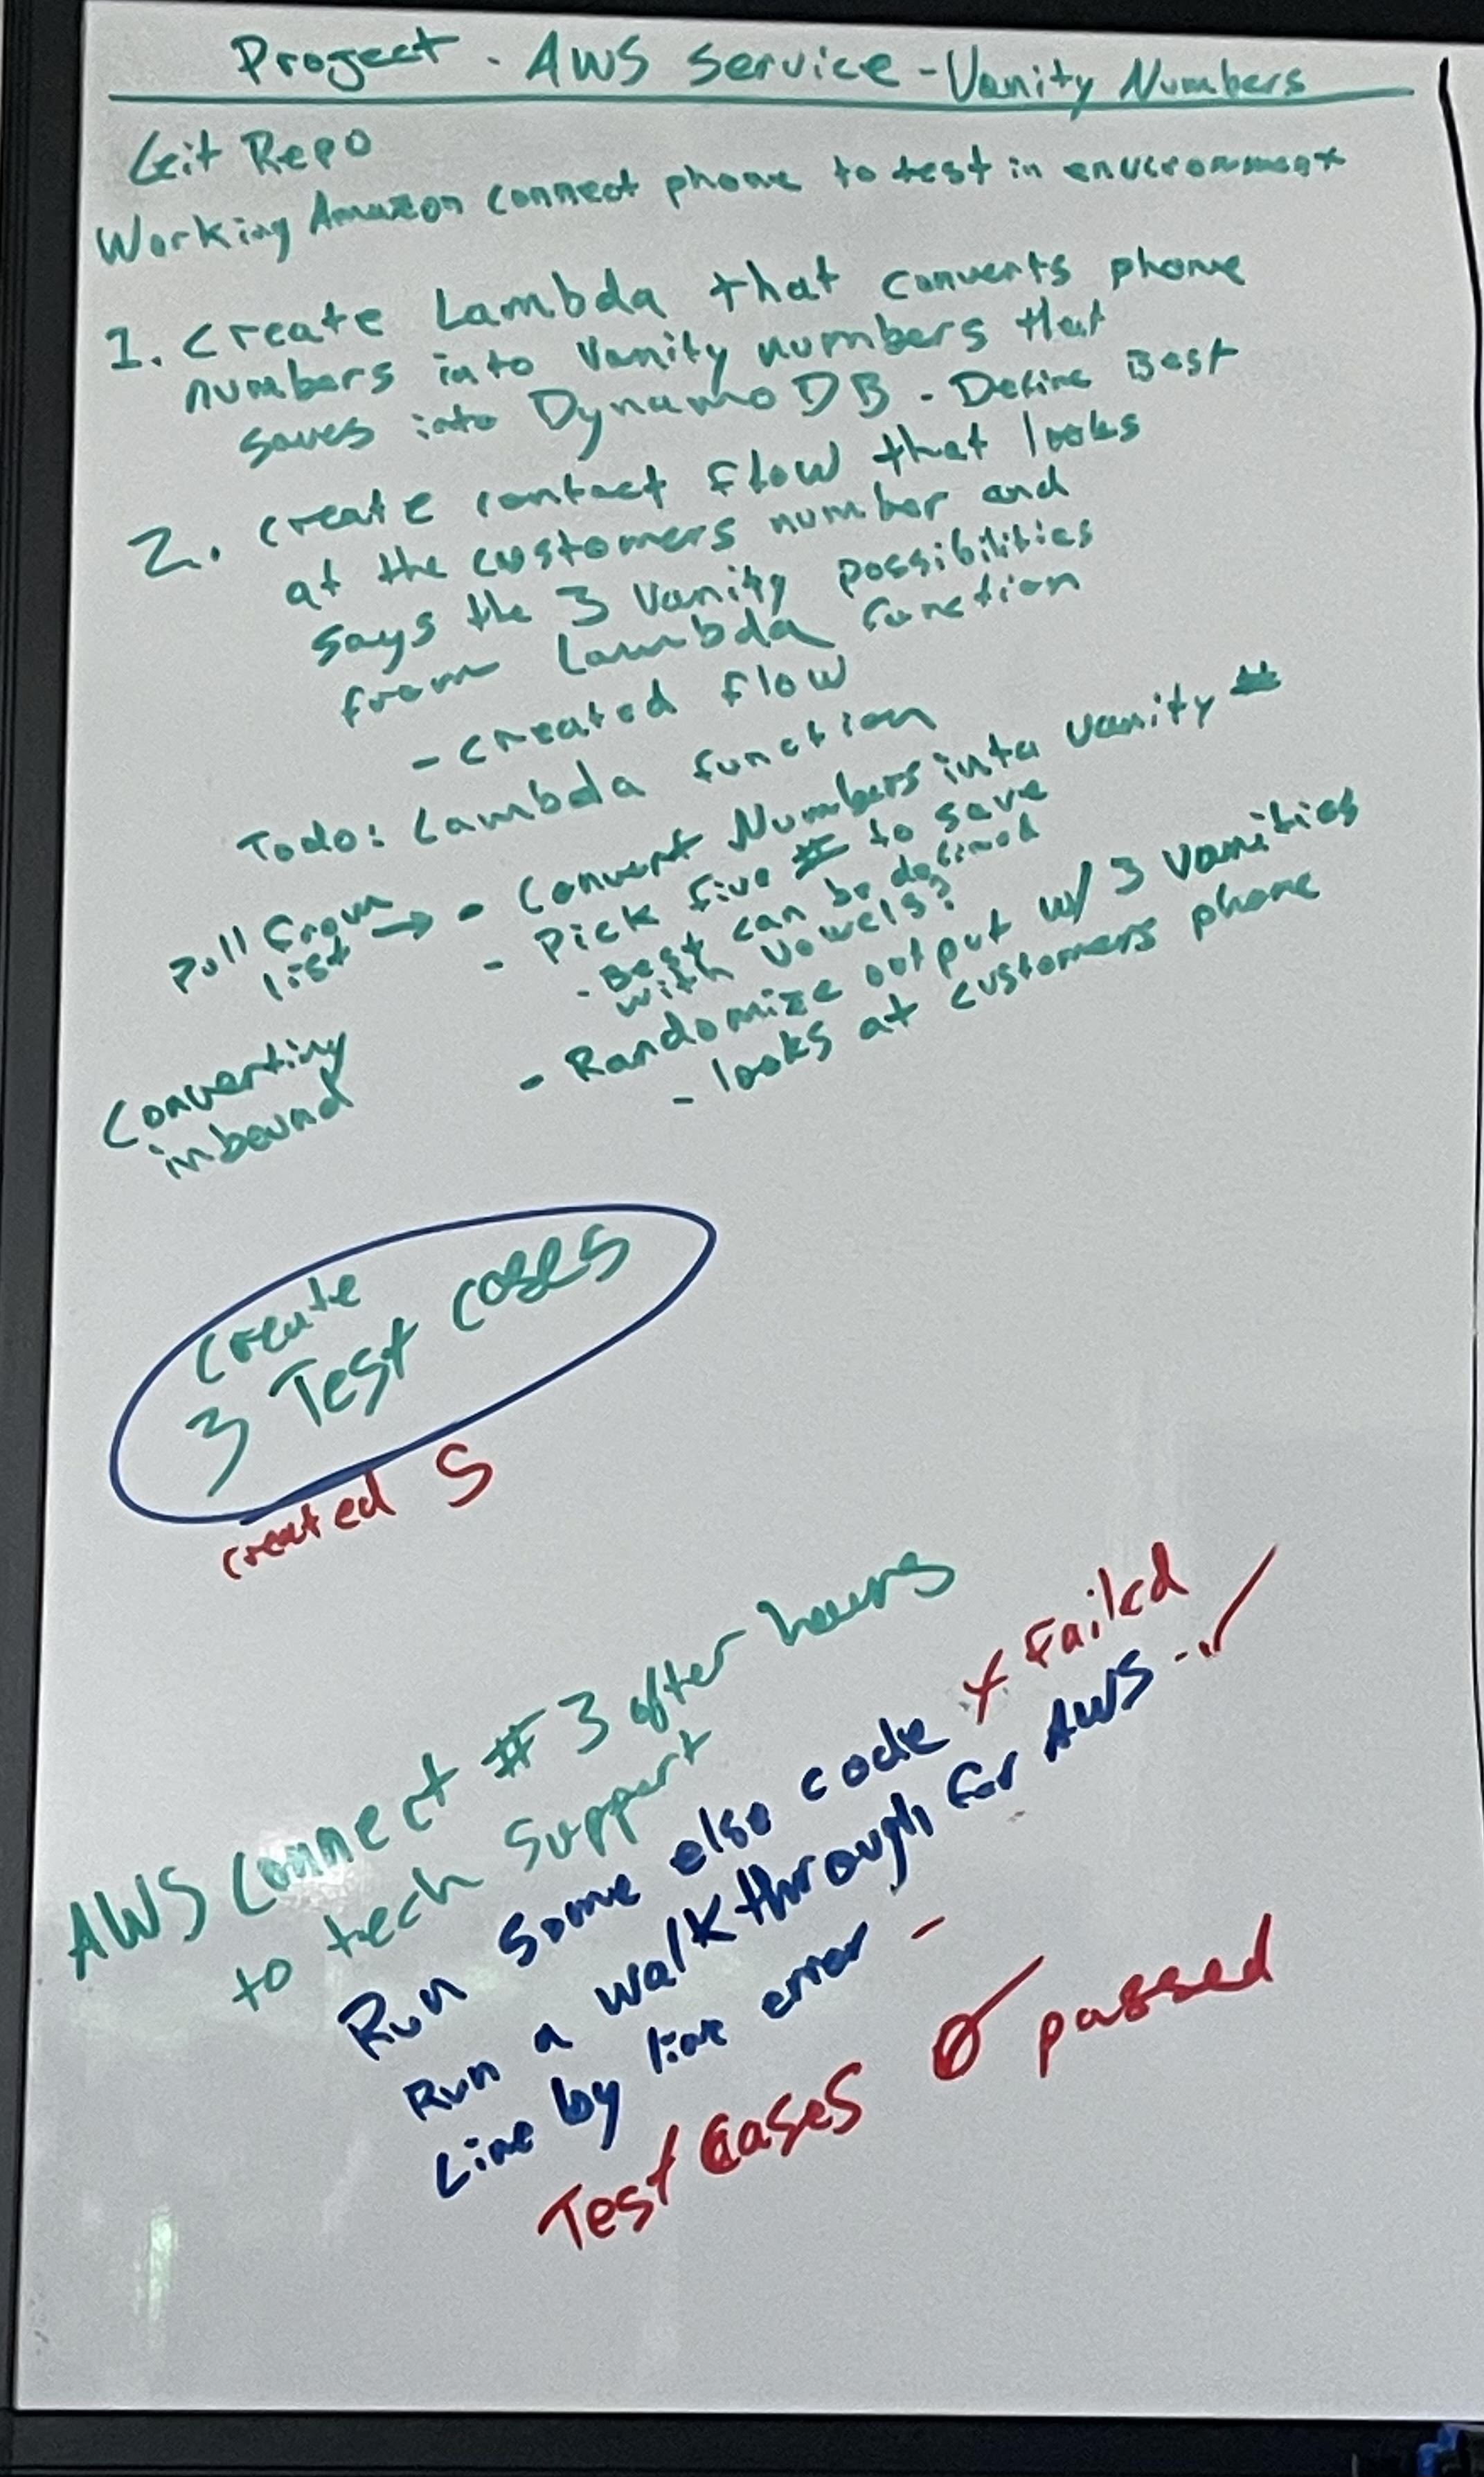 Project - AWS Service - Vanity Numbers
Git Repo
Working Amazon connect phone to test in environment
1. Create Lambda that converts phone
numbers into Vanity numbers that
saves into Dynamo DB - Define Best
2. create contact flow that looks
at the customers number and
says the 3 Vanity possibilities
from Lambda function
- created flow
Todo: Lambda function
Pull from
list →
- Convert Numbers into vanity #
- Pick five # to save
- Best can be defined
with vowels?
- Randomize output w/ 3 vanities
- looks at customers phone
Converting
inbound
create
3 Test cases
created 5
AWS Connect # 3 after hours
to tech support
Run some else code x Failed
Run a walk through for AWS - ✓
Line by line error -
Test cases passed